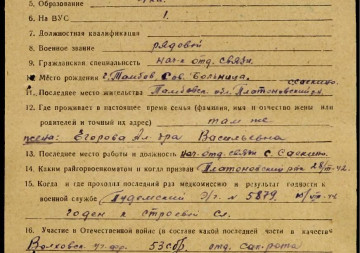 5. Образование
6. На ВУС 1.
7. Должностная квалификация
8. Военное звание рядовой
9. Гражданская специальность нач-к отд. связи
10. Место рождения г. Тамбов, Сов. Больница.
11. Последнее место жительства Тамбовск. обл. Платоновский с. Саюкино.
12. Где проживает в настоящее время семья (фамилия, имя и отчество жены или
родителей и точный их адрес) там же
жена: Егорова Ал-дра Васильевна
13. Последнее место работы и должность нач. отд. связи с. Саюкино.
14. Каким райгорвоенкоматом и когда призван Платоновский рвк
15. Когда и где проходил последний раз медкомиссию и результат годности к
военной службе э/г. N 5879.
годен к строевой сл.
16. Участие в Отечественной войне (в составе какой последней части в качестве
Волховск. 53 отд. сап-рота